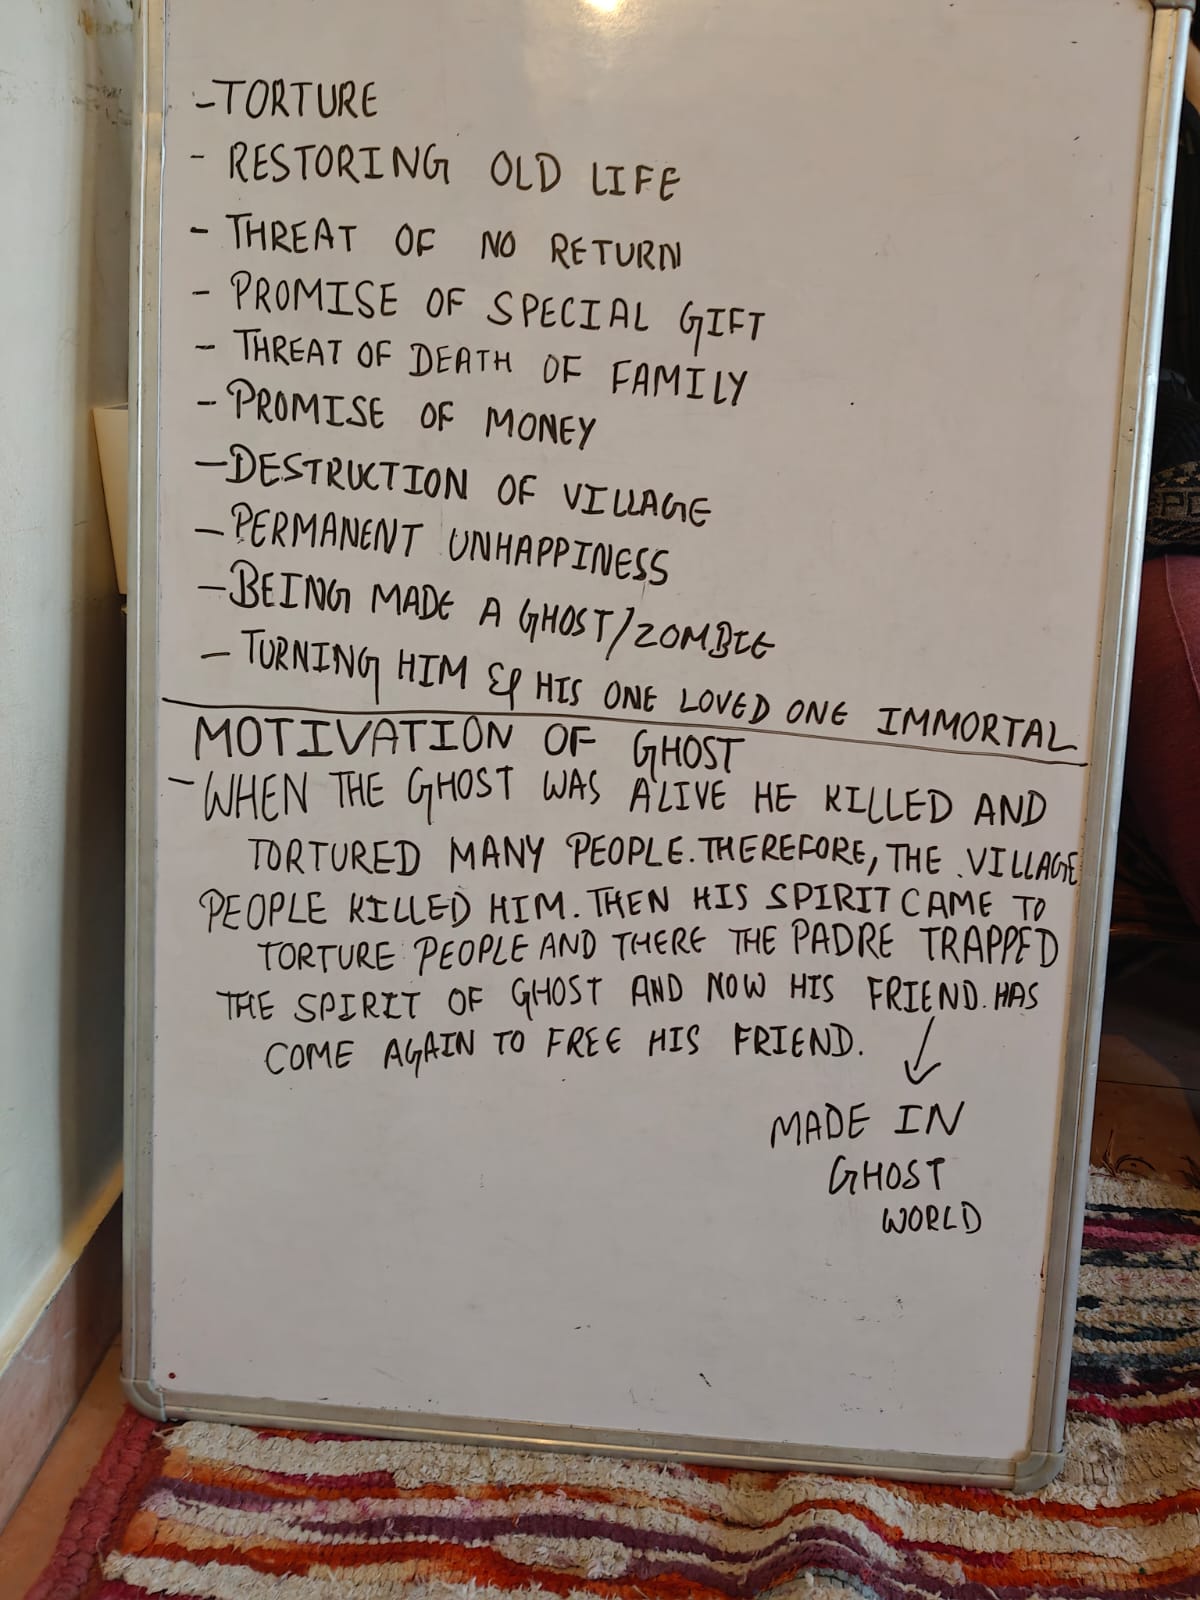 - TORTURE
- RESTORING OLD LIFE
- THREAT OF NO RETURN
- PROMISE OF SPECIAL GIFT
- THREAT OF DEATH OF FAMILY
- PROMISE OF MONEY
- DESTRUCTION OF VILLAGE
- PERMANENT UNHAPPINESS
- BEING MADE A GHOST/ZOMBIE
- TURNING HIM & HIS ONE LOVED ONE IMMORTAL
MOTIVATION OF GHOST
- WHEN THE GHOST WAS ALIVE HE KILLED AND
TORTURED MANY PEOPLE. THEREFORE, THE VILLAGE
PEOPLE KILLED HIM. THEN HIS SPIRIT CAME TO
TORTURE PEOPLE AND THERE THE PADRE TRAPPED
THE SPIRIT OF GHOST AND NOW HIS FRIEND. HAS
COME AGAIN TO FREE HIS FRIEND.
MADE IN
GHOST
WORLD